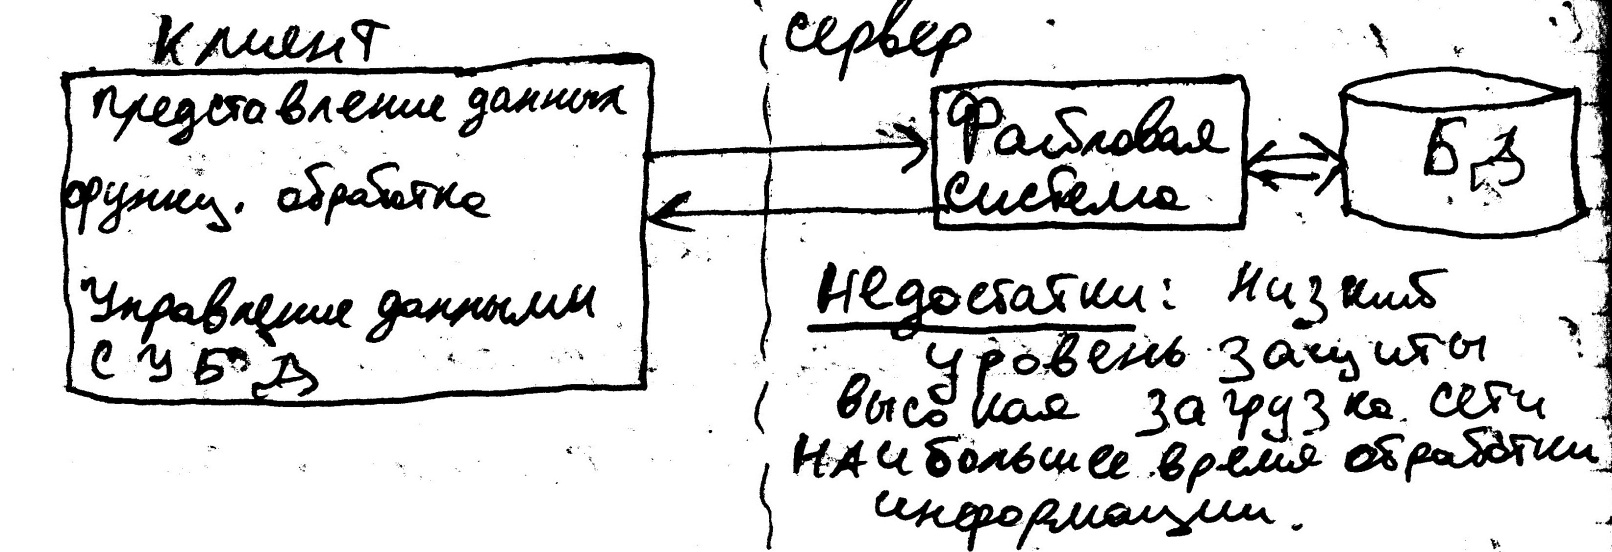 Клиент
Представление данных
функц. обработка
Управление данными
СУБД
сервер
Файловая
система
БД
Недостатки: Низкий
уровень защиты
высокая загрузка сети
НАибольшее время обработки
информации.